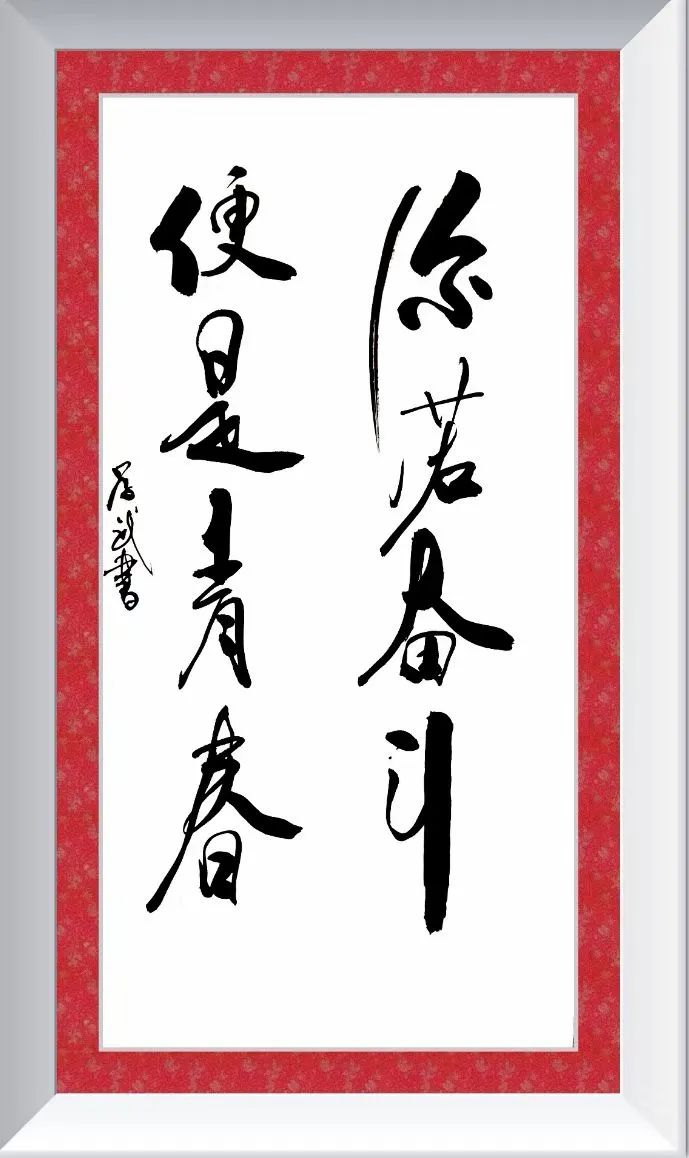 你若奋斗
便是青春